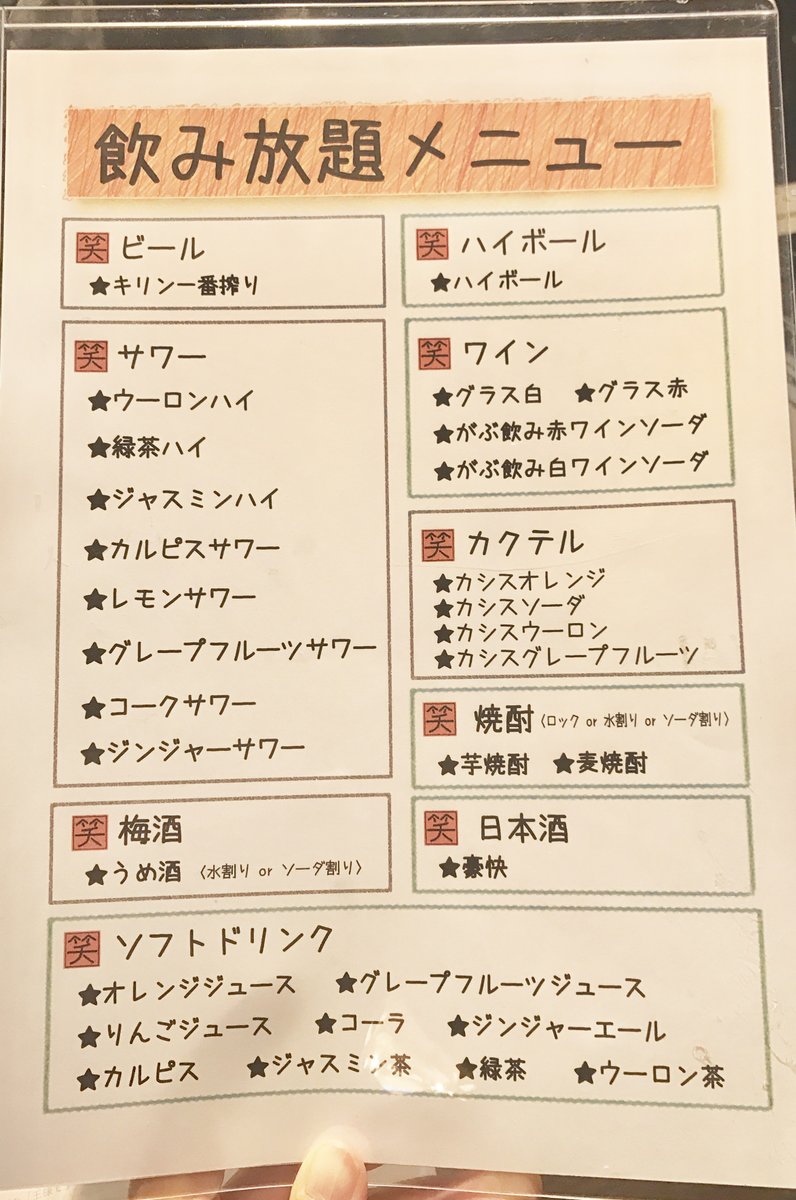 飲み放題メニュー
笑 ビール
★キリン一番搾り
笑 サワー
★ウーロンハイ
★緑茶ハイ
★ジャスミンハイ
★カルピスサワー
★レモンサワー
★グレープフルーツサワー
★コークサワー
★ジンジャーサワー
笑 梅酒
★うめ酒 〈水割り or ソーダ割り〉
笑 ハイボール
★ハイボール
笑 ワイン
★グラス白 ★グラス赤
★がぶ飲み赤ワインソーダ
★がぶ飲み白ワインソーダ
笑 カクテル
★カシスオレンジ
★カシスソーダ
★カシスウーロン
★カシスグレープフルーツ
笑 焼酎〈ロック or 水割り or ソーダ割り〉
★芋焼酎 ★麦焼酎
笑 日本酒
★豪快
笑 ソフトドリンク
★オレンジジュース ★グレープフルーツジュース
★りんごジュース ★コーラ ★ジンジャーエール
★カルピス ★ジャスミン茶 ★緑茶 ★ウーロン茶